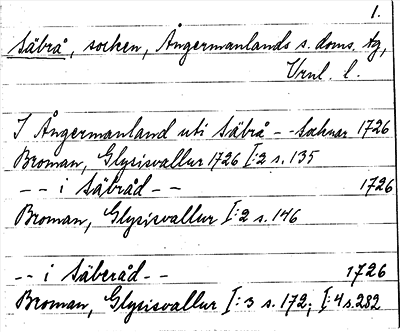 1.
Säbrå, socken, Ångermanlands s. doms. tg,
Vrnl. l.
I Ångermanland uti Säbrå - - Socknar 1726
Broman, Glysisvallur 1726 I:2 s. 135
- - i Säbråd - - 1726
Broman, Glysisvallur I:2 s. 146
- - i Säberåd - - 1726
Broman, Glysisvallur I:3 s. 172; I:4 s. 282